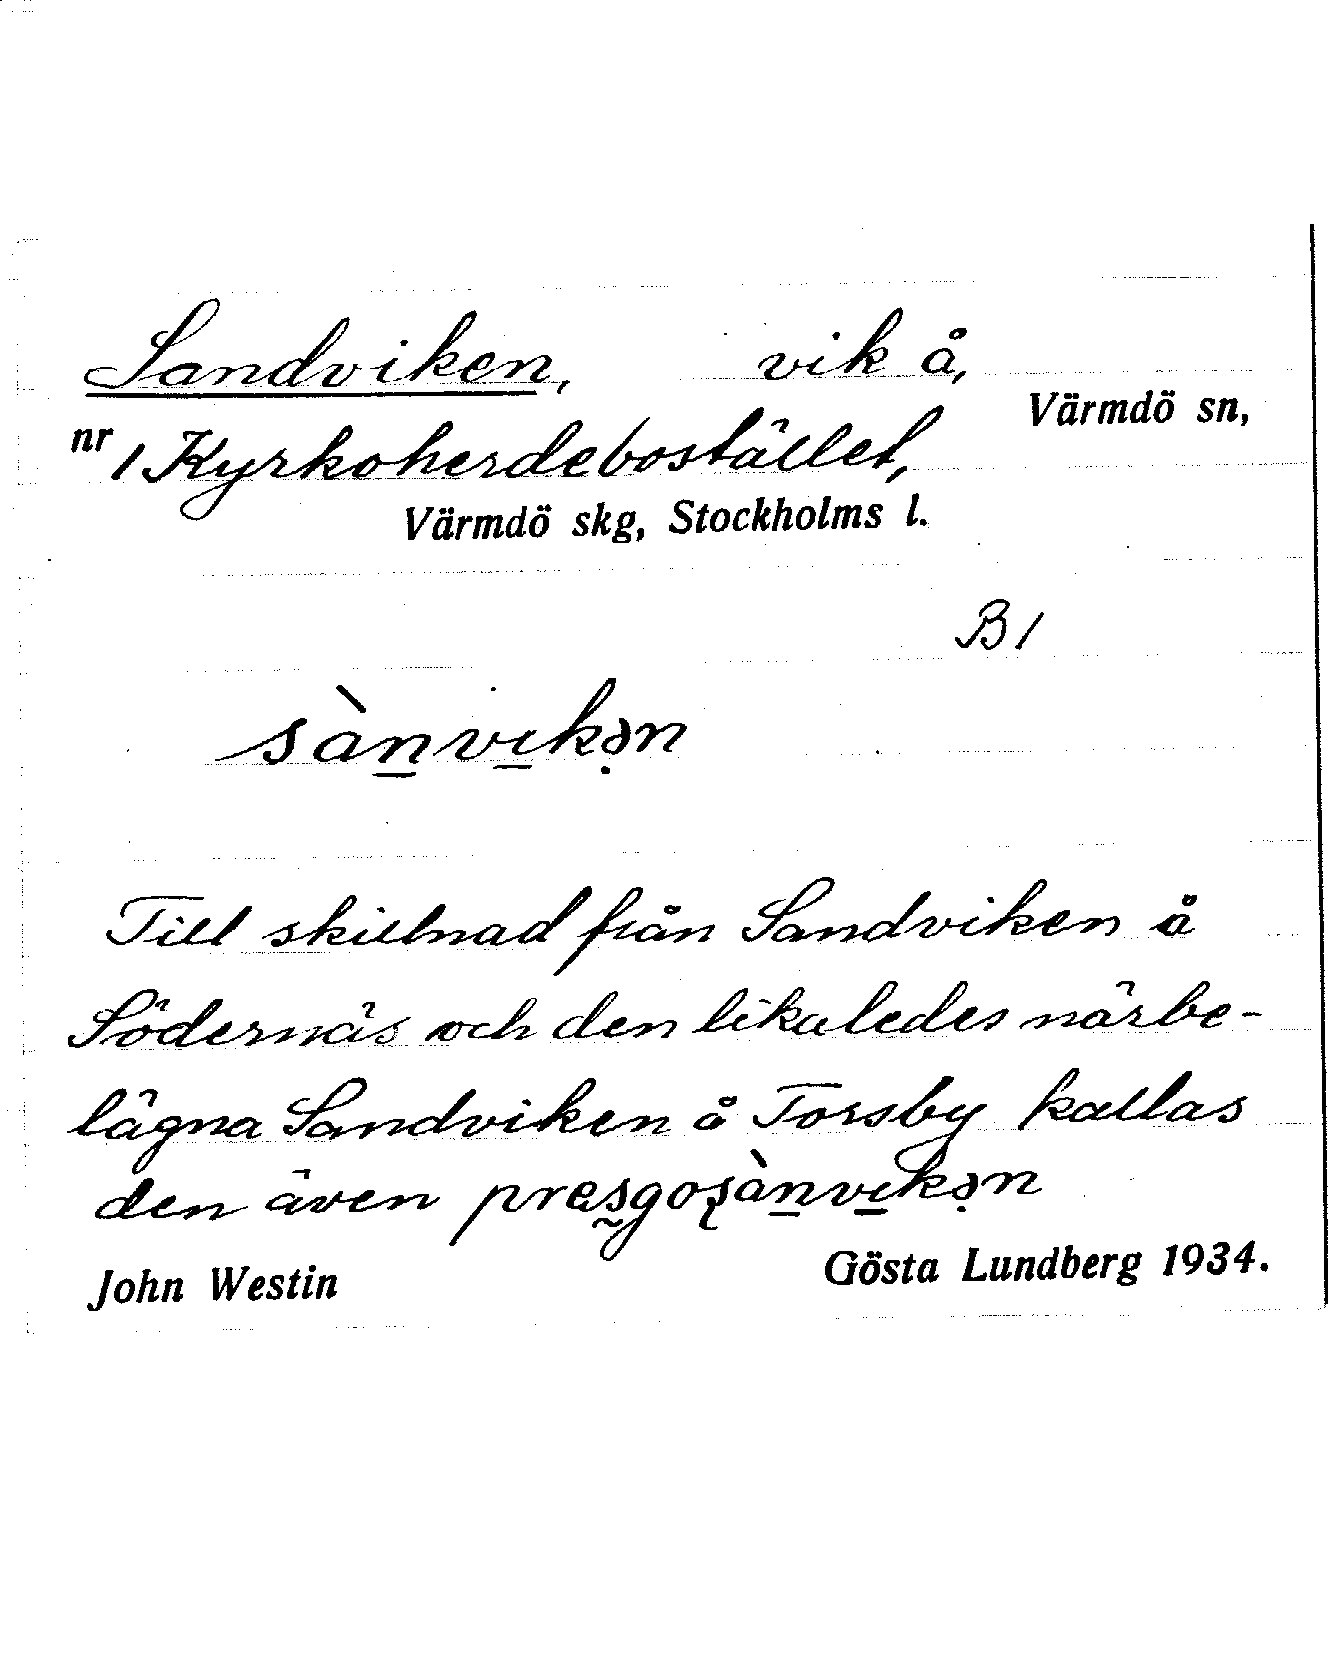 Sandviken, vik å,
Värmdö sn,
nr 1 Kyrkoherdebostället,
Värmdö skg, Stockholms l.
B1
sàn̲vi̲kə̣n
Till skillnad från Sandviken å
Södernäs och den likaledes närbe-
lägna Sandviken å Torsby kallas
den även pres̰goʂàn̲vi̲kə̣n
John Westin
Gösta Lundberg 1934.